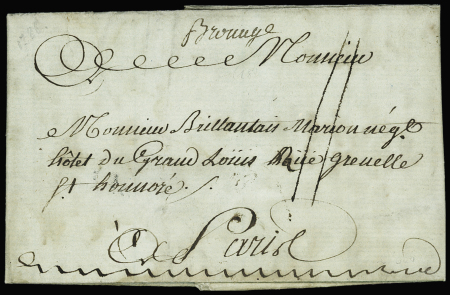 Brouage
Monsieur
Monsieur Brillantais Marion négt
hôtel du Grand Loüis Rüe grenelle
st honnoré
A Paris